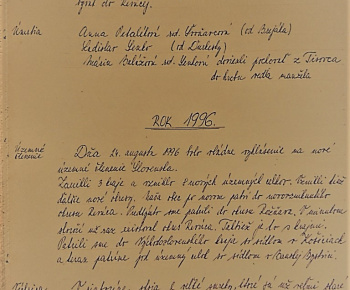 Úmrtia Anna Petrlíková vd. Vorčárcová (od Bujáka)
Ladislav Genko (od Duchody)
Mária Balážová vd. Genková doviezli pochovať z Tisovca
do hrobu vedľa manžela
ROK 1996.
Územné členenie
Dňa 24. augusta 1996 bolo vládne vyhlásenie na nové
územné členenie Slovenska.
Zanikli 3 kraje a vzniklo 8 nových územných celkov. Vznikli tiež
ďalšie nové okresy. Naša obec po novom patrí do novovzniknutého
okresu Revúca. Predtým sme patrili do okresu Rožňava. V minulom
storočí už raz existoval okres Revúca. Taktiež je to s krajom.
Patrili sme do Východoslovenského kraja so sídlom v Košiciach
a teraz patríme pod územný celok so sídlom v Banskej Bystrici.